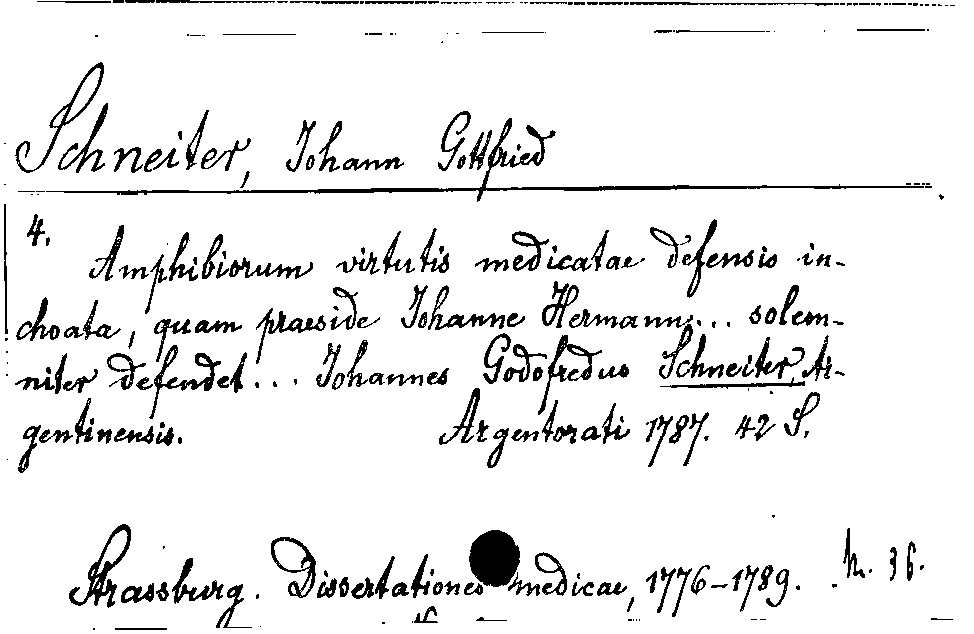 Schneiter, Johann Gottfried
4.
Amphibiorum virtutis medicatae defensio in-
choata, quam praeside Johanne Hermann... solem-
niter defendet... Johannes Godofredus Schneiter, Ar-
gentinensis. Argentorati 1787. 42 S.
Strassburg. Dissertationes medicae, 1776-1789. N. 36.